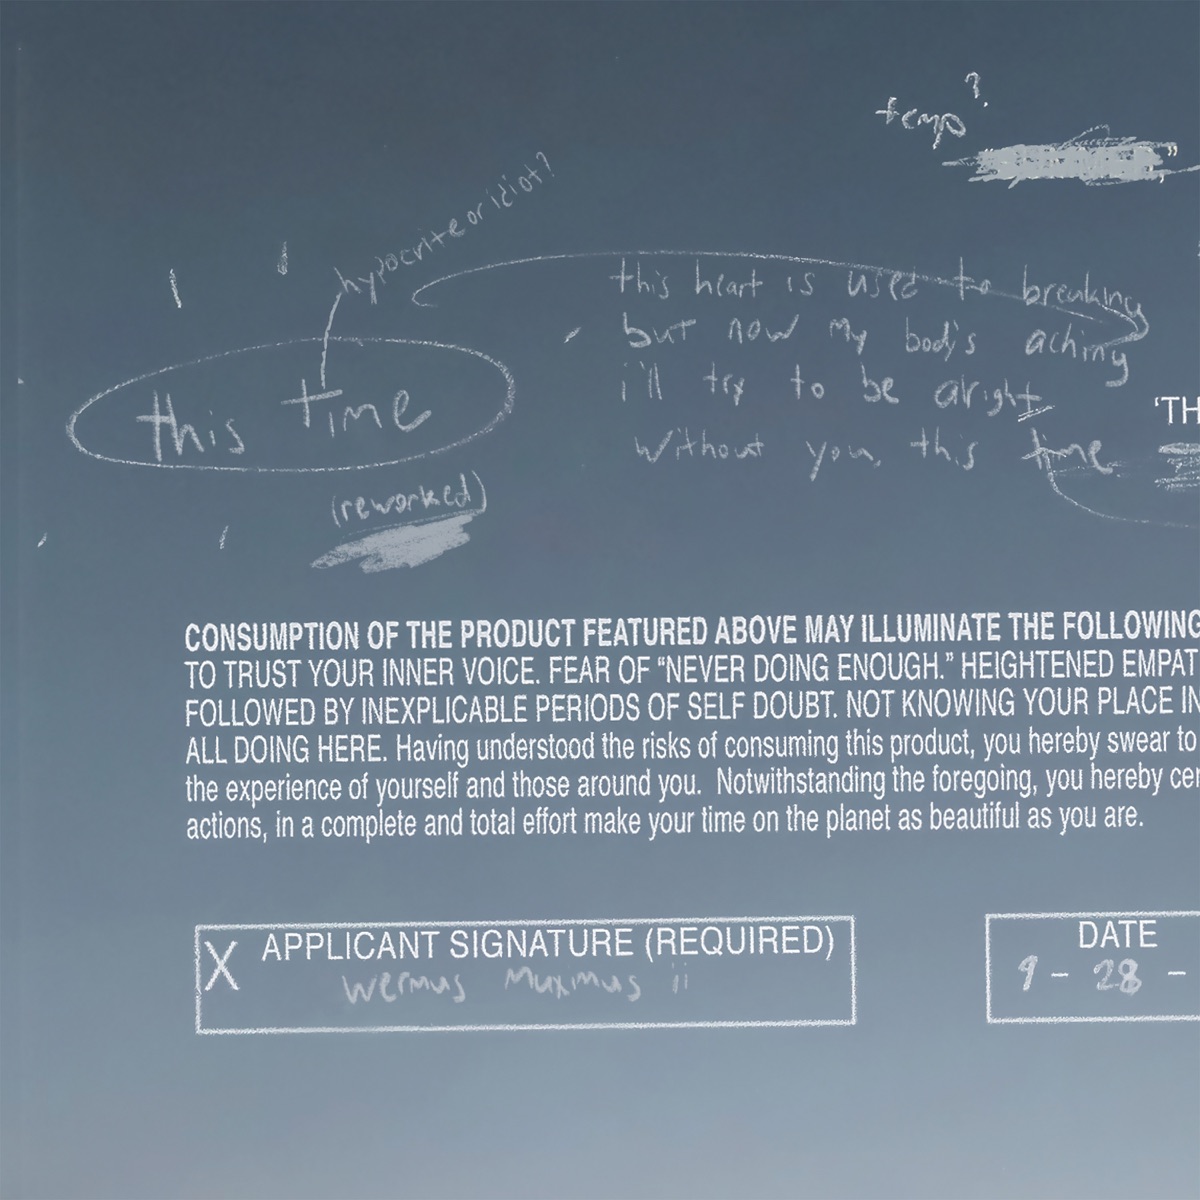 temp?
hypocrite or idiot?
this heart is used to breaking
but now my body's aching
i'll try to be alright
without you, this time
'TH
this time
(reworked)
CONSUMPTION OF THE PRODUCT FEATURED ABOVE MAY ILLUMINATE THE FOLLOWING
TO TRUST YOUR INNER VOICE. FEAR OF “NEVER DOING ENOUGH.” HEIGHTENED EMPAT
FOLLOWED BY INEXPLICABLE PERIODS OF SELF DOUBT. NOT KNOWING YOUR PLACE IN
ALL DOING HERE. Having understood the risks of consuming this product, you hereby swear to
the experience of yourself and those around you. Notwithstanding the foregoing, you hereby cer
actions, in a complete and total effort make your time on the planet as beautiful as you are.
X APPLICANT SIGNATURE (REQUIRED)
wermus Muximus ii
DATE
9 - 28 -